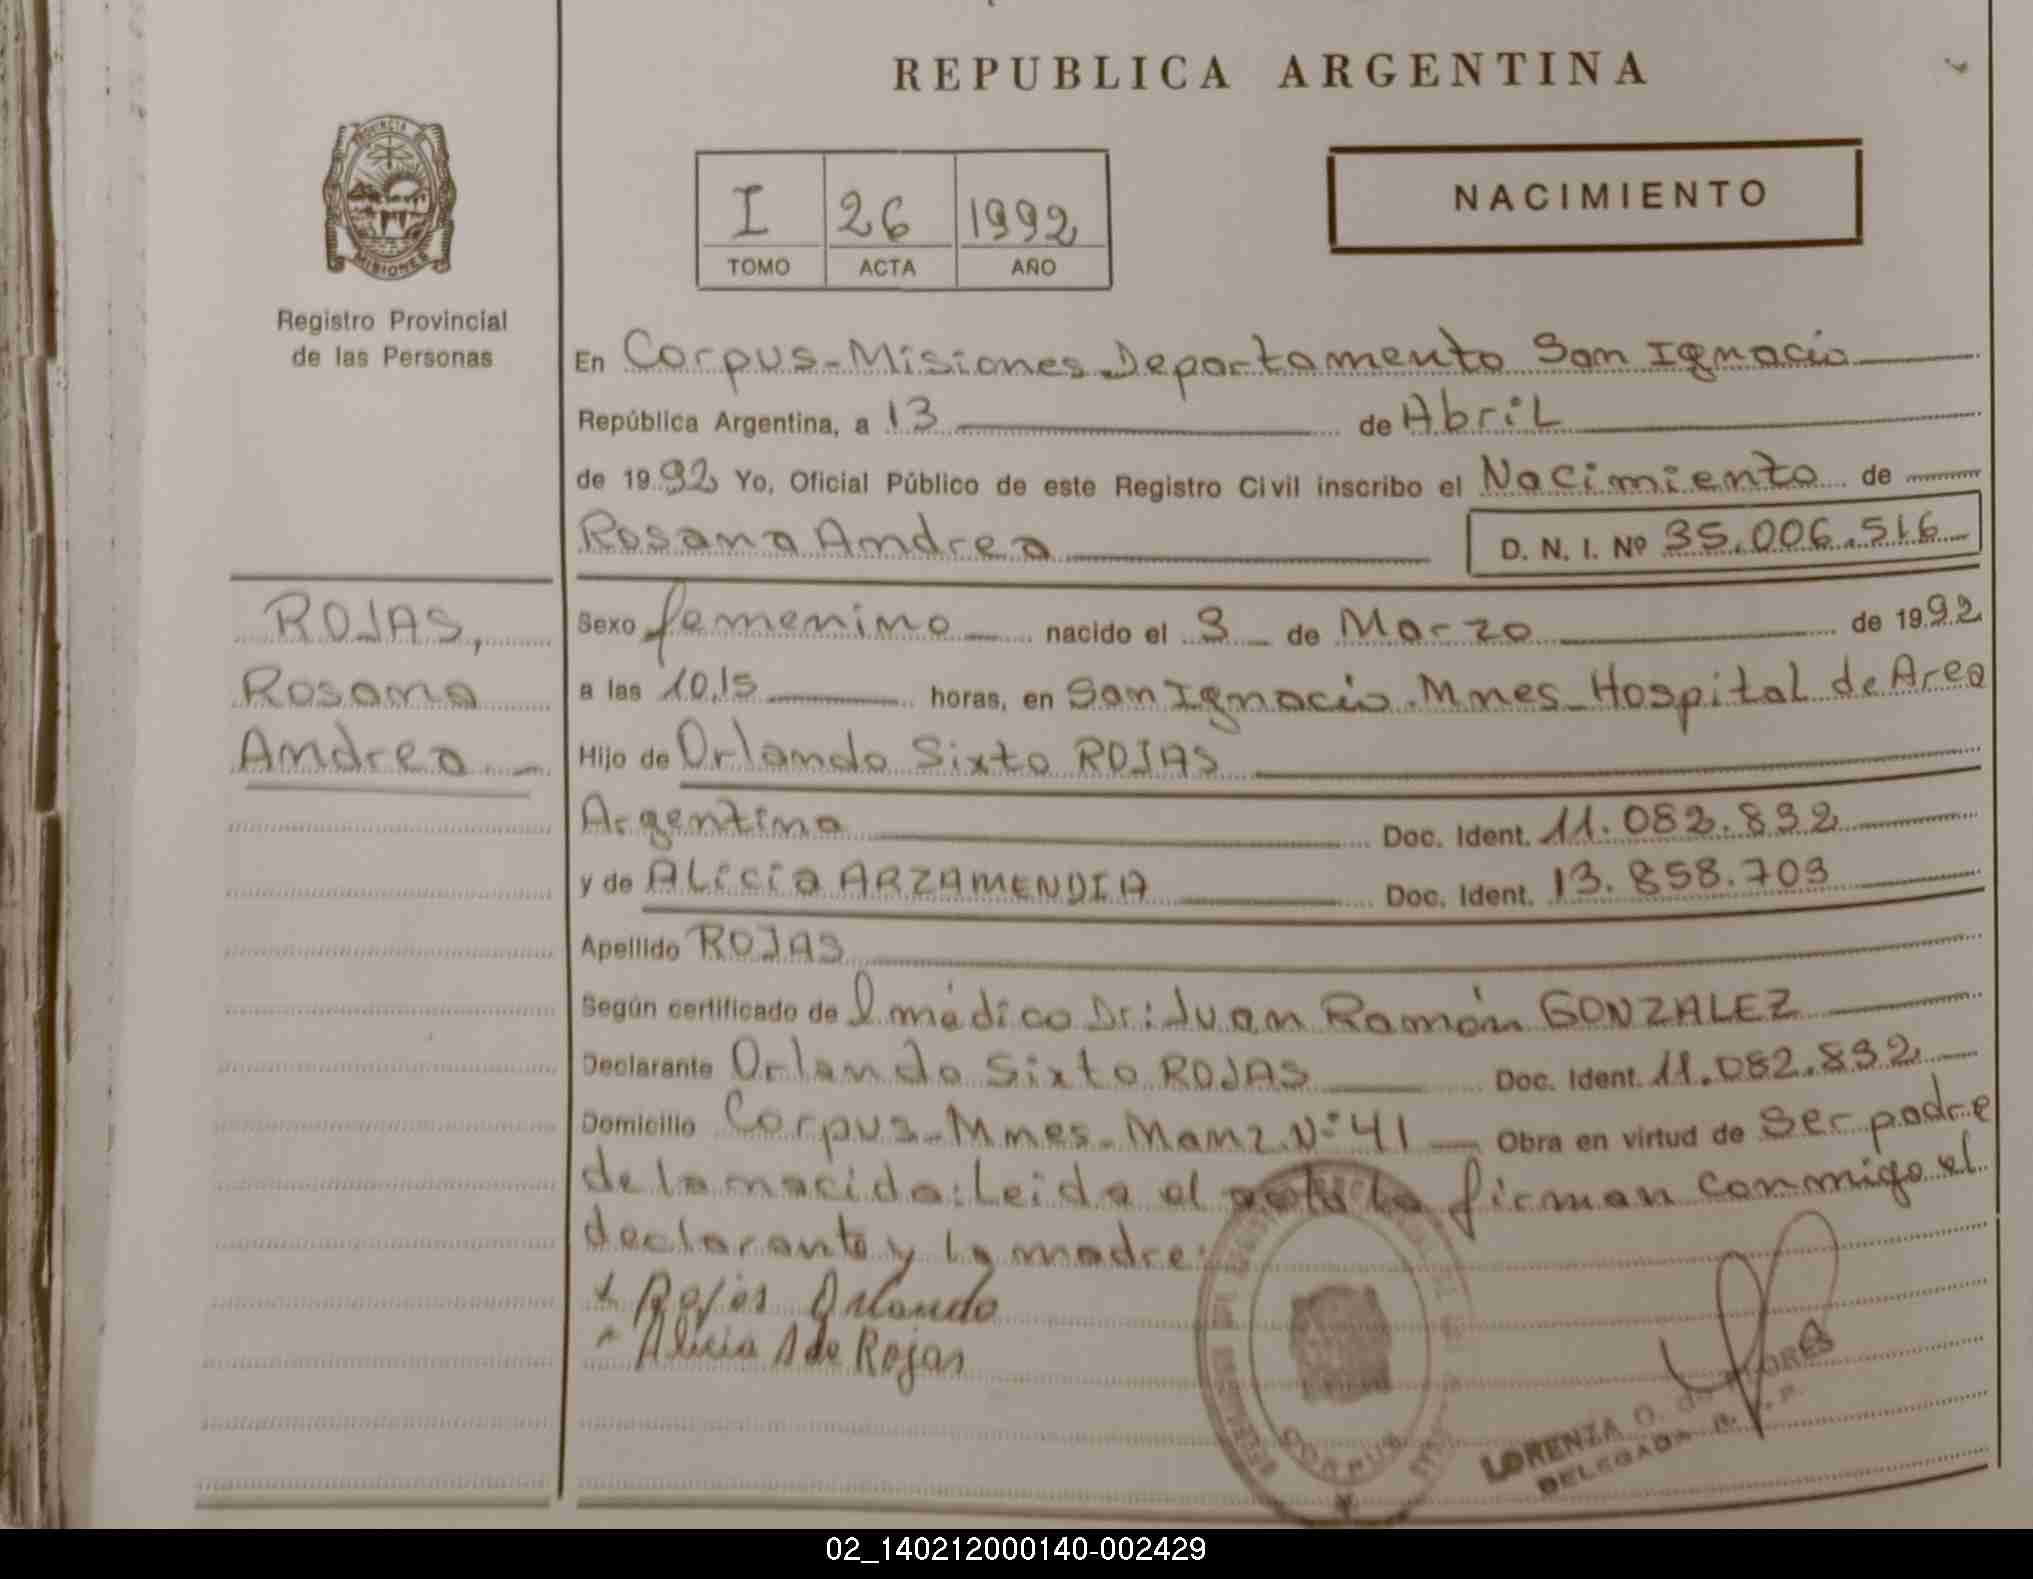 REPUBLICA ARGENTINA
PROVINCIA
MISIONES
Registro Provincial
de las Personas
I 26 1992
TOMO ACTA AÑO
NACIMIENTO
En Corpus-Misiones Departamento San Ignacio
República Argentina, a 13 de Abril
de 1992 Yo, Oficial Público de este Registro Civil inscribo el Nacimiento de
Rosana Andrea D. N. I. Nº 35.006.516
ROJAS,
Rosana
Andrea
Sexo femenino nacido el 3 de Marzo de 1992
a las 10,15 horas, en San Ignacio. Mnes_Hospital de Area
Hijo de Orlando Sixto ROJAS
Argentina Doc. Ident. 11.082.832
y de ALicia ARZAMENDIA Doc. Ident. 13.858.703
Apellido ROJAS
Según certificado de l médico Dr: Juan Ramón GONZALEZ
Declarante Orlando Sixto ROJAS Doc. Ident. 11.082.832
Domicilio Corpus-Mnes-Manz.Nº41 Obra en virtud de Ser padre
de la nacida: Leida el acta la firman conmigo el
declarante y la madre:
x Rojas Orlando
Alicia A de Rojas
CORPUS
LORENZA O. de FLORES
DELEGADA R. P. P.
02_140212000140-002429